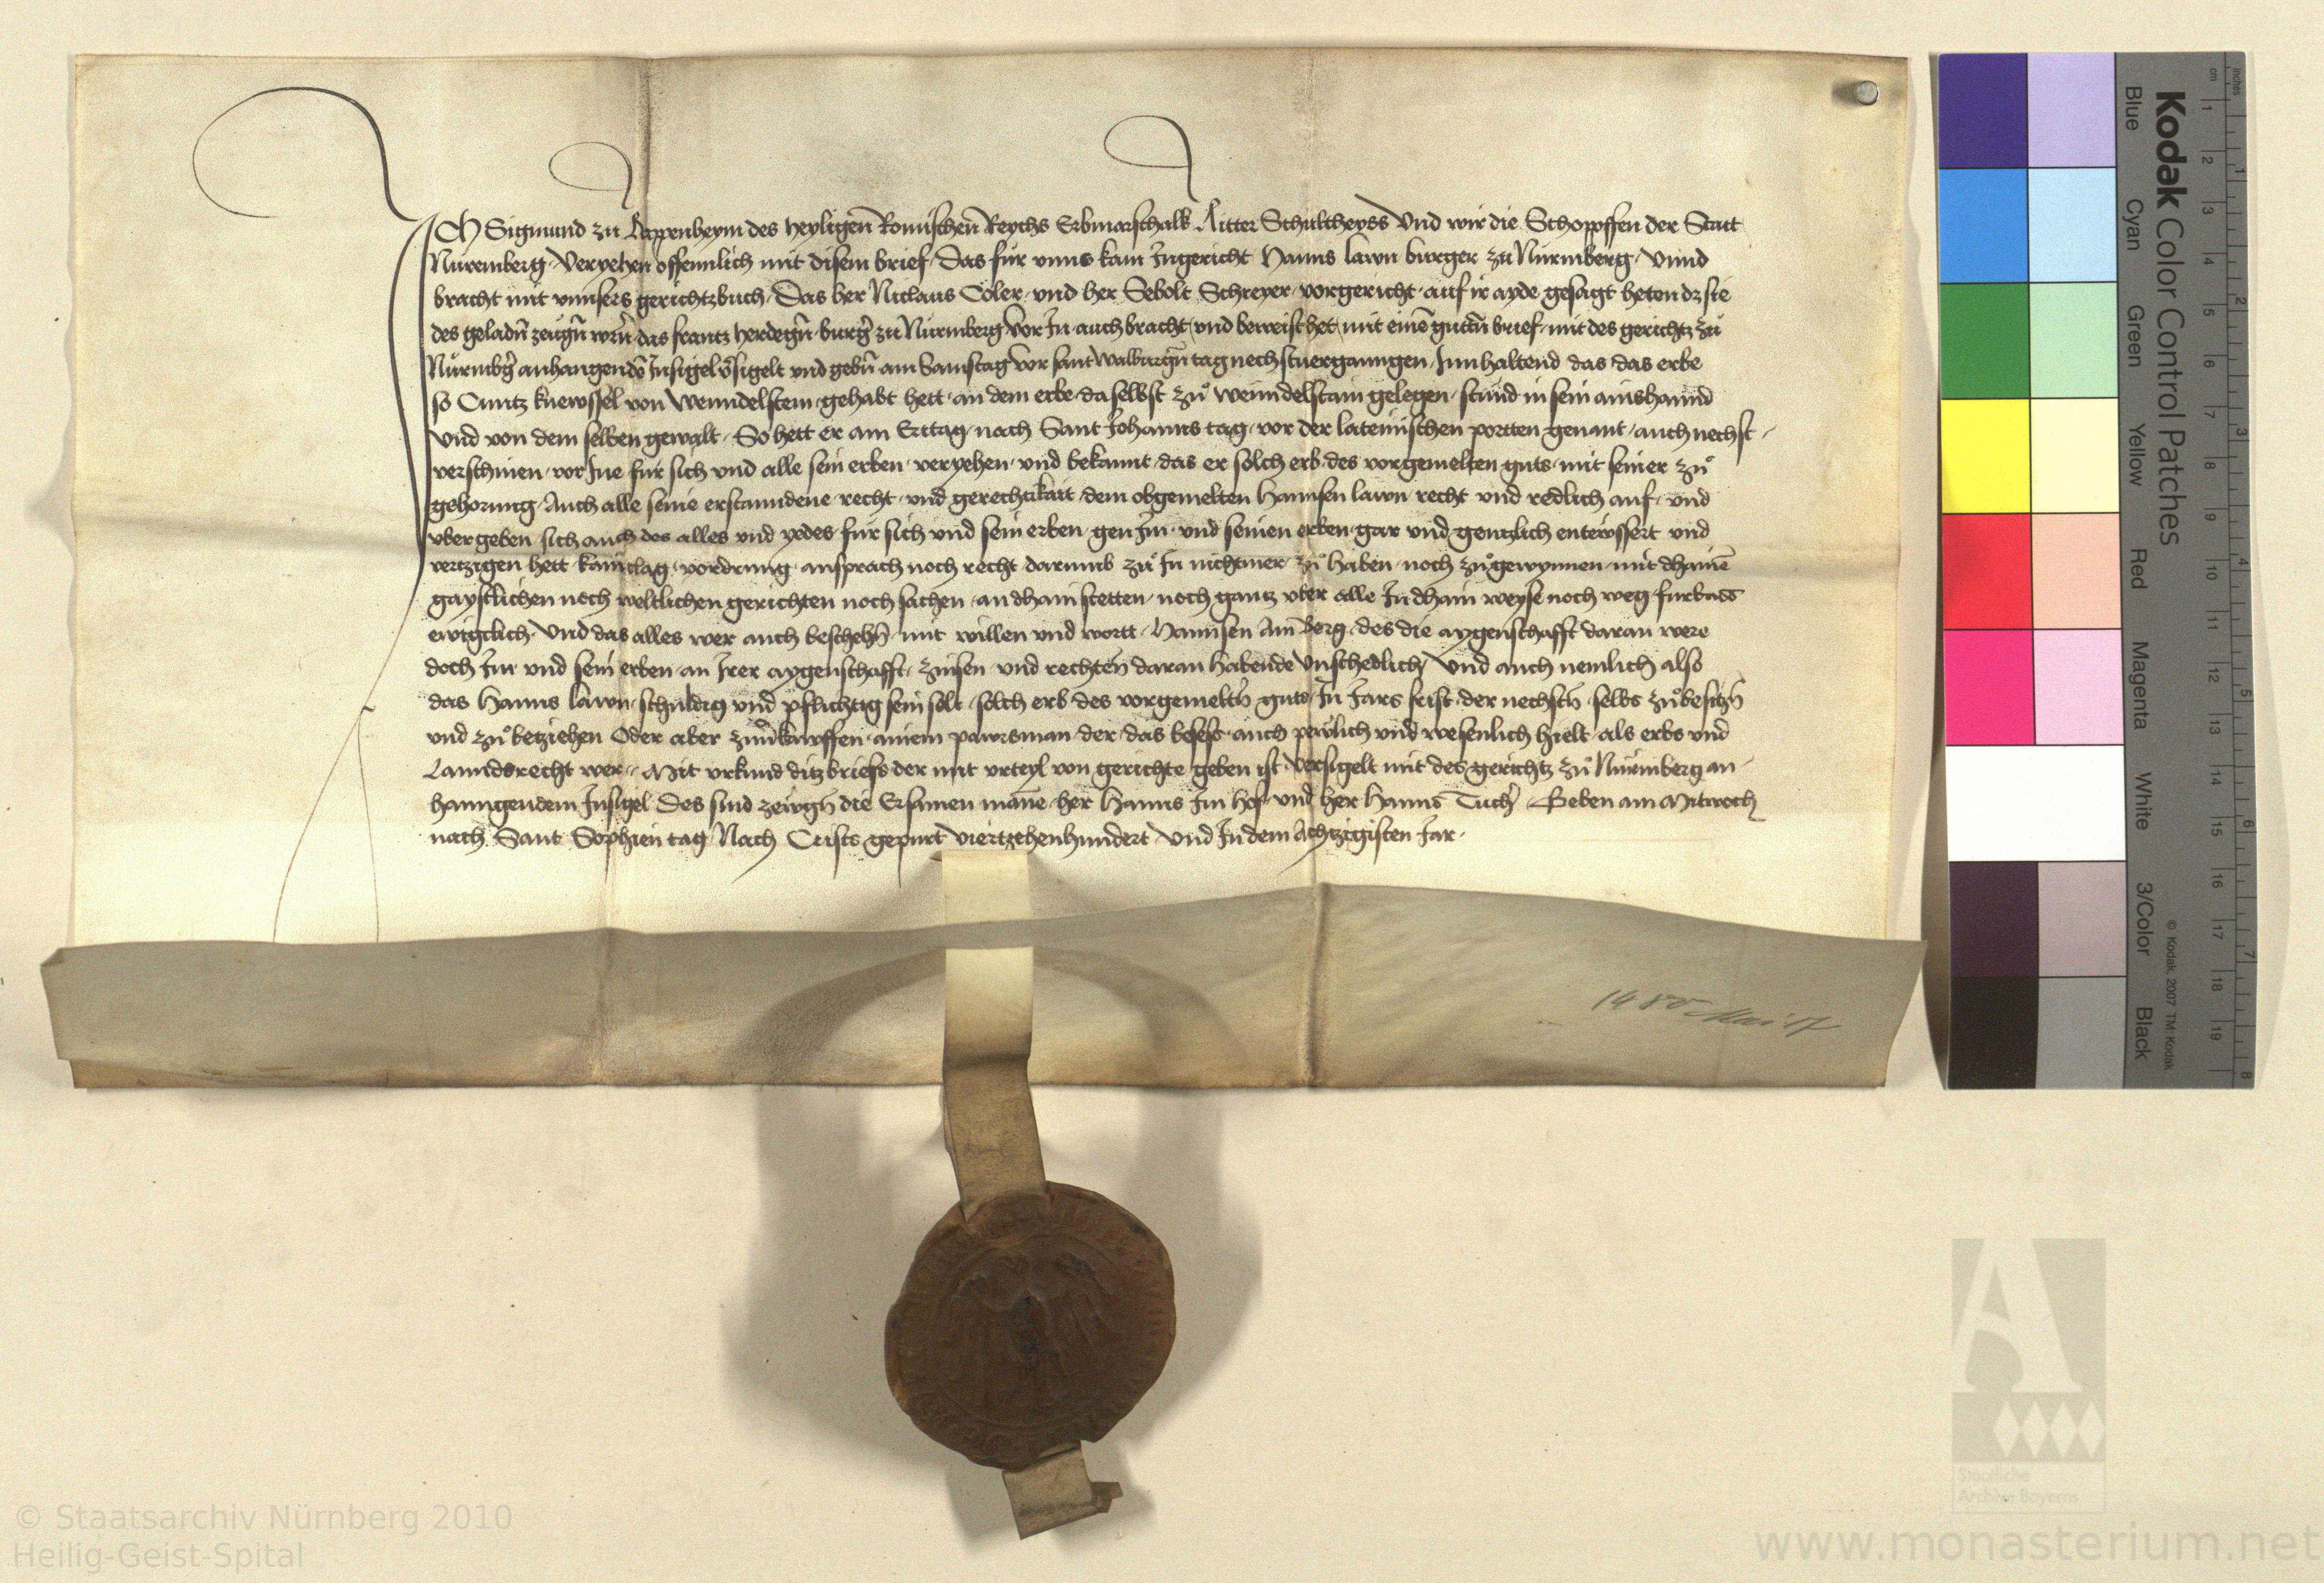 Ich Sigmund zu Bappenheym des heyligen Romischen Reychs Erbmarschalk Ritter Schultheyss Und wir die Schopffen der Statt
Nüremberg Veryehen offennlich mit disem brief Das für unns kam Ingericht Hanns lawn burger zu Nürmberg Unnd
bracht mit unnsers gerichtzbuch Das her Niclaus Coler und her Sebolt Schreyer vorgericht auf ir ayde gesagt heten dz sie
des geladn̄ zeugn̄ wrn̄ das frantz herdegn̄ burgr̄ zu Nürmberg vor In auch bracht und beweist het mit einē guttn̄ brief mit des gerichtz zů
Nürmbgr̄ anhangendō Insigel vs̄igelt und gebn̄ am Samstag vor sant walburgn̄ tag nechstuergangen Innhaltend das das erbe
so Cuntz knewssel von Wenndelstein gehabt hett an dem erbe daselbst zů wenndelstain gelegen stünd in sein ains hannd
Und von dem selben gewalt So hett er am Erttag nach Sant Johanns tag vor der lateinischen portten genant auch nechst
verschinen vor Ine für sich und alle sein erben veryehen und bekannt das er solch erb des vorgemelten guts mit seiner zů
gehorung Auch alle seine erstanndene recht und gerechtikait dem obgemelten Hannsen lawn recht und redlich auf und
uber geben sich auch des alles und yedes für sich und sein erben gen Im und seinen erben gar und gentzlich entewssert und
vertzigen hett kain clag vordrung ansprach noch recht darumb zů In nichtmer zů haben noch zů gewynnen mit dhainē
gaystlichen noch weltlichen gerichten noch sachen an dhain stetten noch gantz uber alle In dhain weyse noch weg furbass
ewigclich Und das alles wer auch beschehn̄ mit willen und wortt Hannsen Am Berg des die aygenschafft daran were
doch Im und sein erben an Irer aygenschafft zinsen und rechten daran habende Unschedlich Und auch nemlich also
das Hanns lawn schuldig und pflichtig sein solt solch erb des vorgemeltn̄ guts In Jars frist der nechstn̄ selbs zů besitzn̄
und zů betziehen Oder aber zuuerkawffen ainem pawrsman der das besess auch pewlich und wesenlich hielt als erbs und
Lanndsrecht wer Mit urkund ditz briefs der mit urteyl von gerichte geben ist Versigelt mit des gerichtz zů Nürmberg an
hanngendem Insigel Des sind zewgn̄ die Ersamen mānne her Hanns Im hof und her Hanns Tuchr̄ Geben am Mitwoch
nach Sant Sophien tag Nach Cristi gepurt Viertzehenhundert Und In dem Achtzigisten Jar
1480 Mai 17
Kodak Color Control Patches
Blue Cyan Green Yellow Red Magenta White 3/Color Black
© Kodak, 2007 TM: Kodak
inches 1 2 3 4 5 6 7 8
cm 1 2 3 4 5 6 7 8 9 10 11 12 13 14 15 16 17 18 19
Staatliche
Archive Bayerns
© Staatsarchiv Nürnberg 2010
Heilig-Geist-Spital
www.monasterium.net